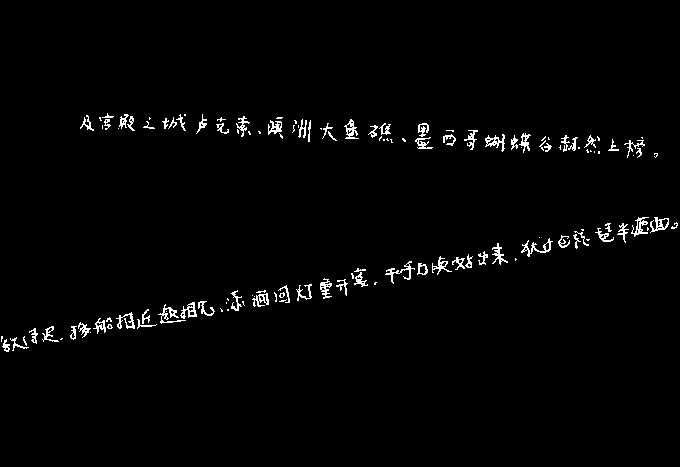 及宫殿之城卢克索、澳洲大堡礁、墨西哥蝴蝶谷赫然上榜。
欲语迟.移船相近邀相见,添酒回灯重开宴.千呼万唤始出来,犹抱琵琶半遮面。